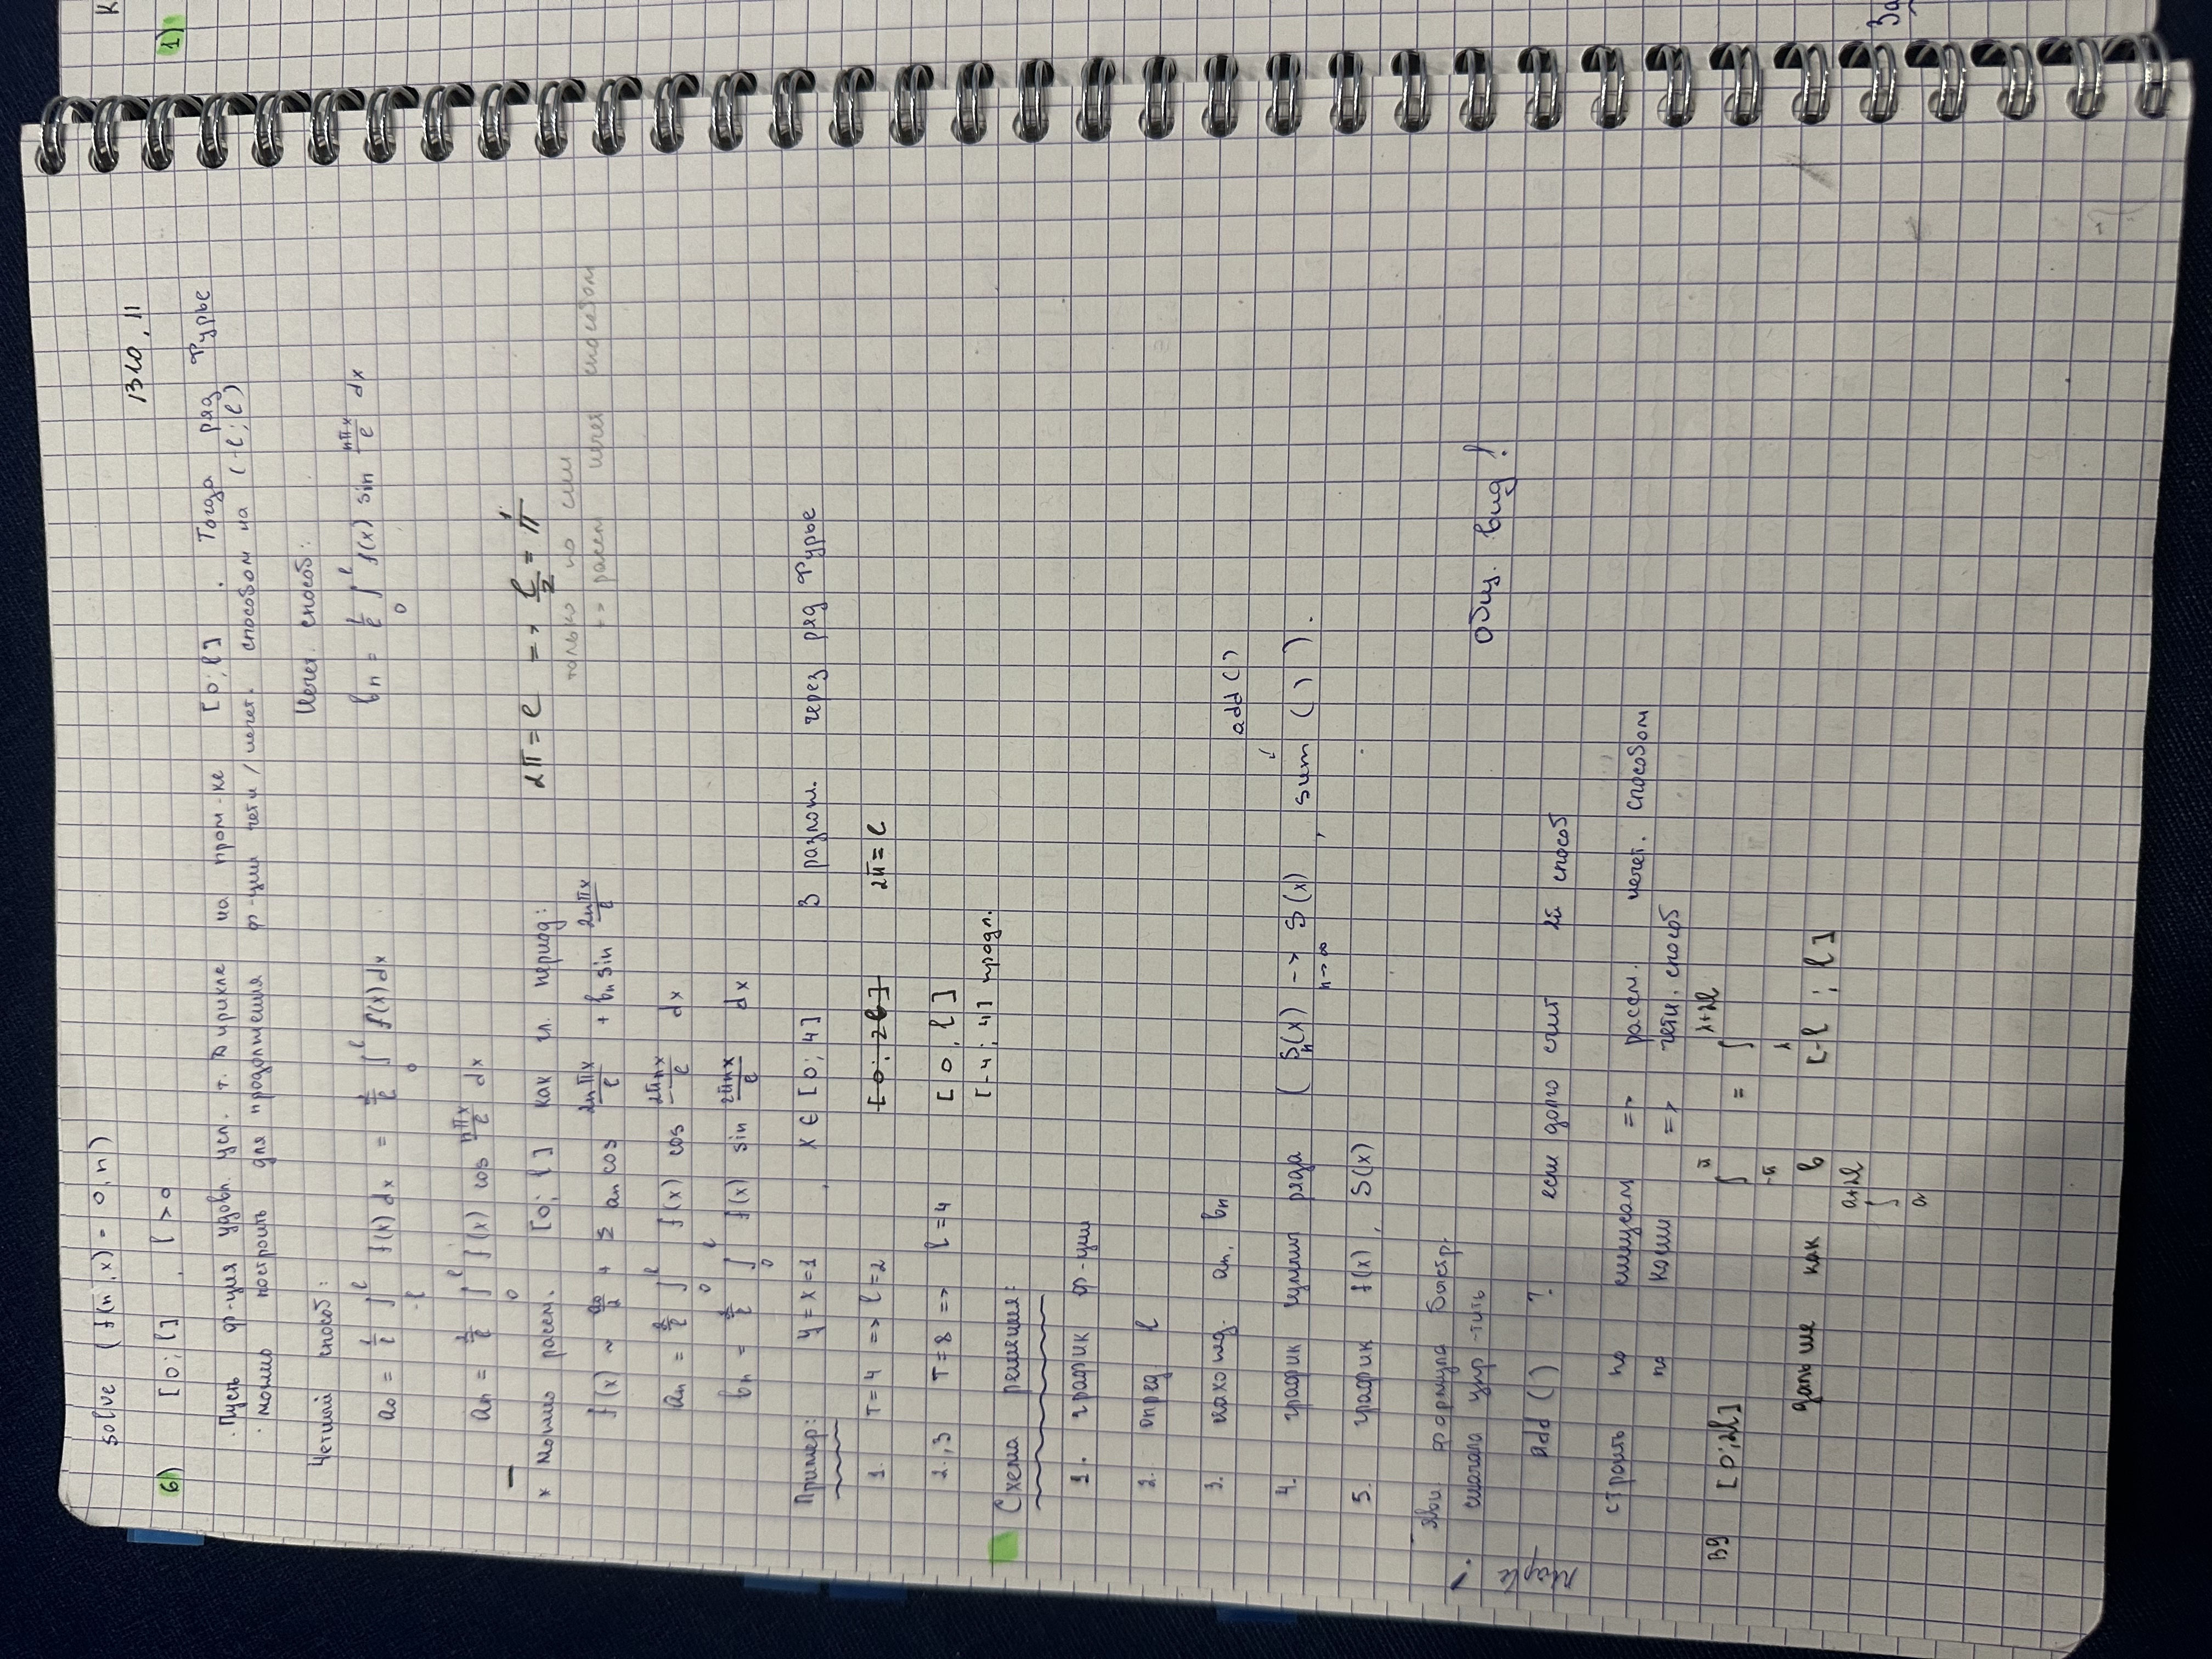 solve (f(n, x) = 0, n)
В10, 11
6) [0; l], l > 0
Пусть ф-ция удовл. усл. т. Дирихле на пром-ке [0; l]. Тогда ряд Фурье
можно построить для продолжения ф-ции четн/нечет. способом на (-l; l)
Четный способ: Нечет. способ:
a₀ = 1/l ∫_{-l}^{l} f(x) dx = 2/l ∫_0^l f(x) dx bₙ = 2/l ∫_0^l f(x) sin nπx/l dx
aₙ = 2/l ∫_0^l f(x) cos nπx/l dx
* Можно рассм. [0; l] как гл. период: 2π = l => l/2 = π
только по син
=> рассм нечет способом
f(x) ~ a₀/2 + Σ aₙ cos 2nπx/l + bₙ sin 2nπx/l
aₙ = 2/l ∫_0^l f(x) cos 2πnx/l dx
bₙ = 2/l ∫_0^l f(x) sin 2πnx/l dx
Пример: y = x = 1, x ∈ [0; 4] 3 разлож. через ряд Фурье
1. T = 4 => l = 2 [0; 2l] 2π = l
2.,3 T = 8 => l = 4 [0, l]
[-4; 4] продл.
Схема решения:
1. график ф-ции
2. опред l
3. нахожд. aₙ, bₙ
add ( )
4. график суммы ряда (Sₙ(x) -> S(x) n→∞, sum ( ) ).
5. график f(x), S(x)
Maple !
формула быстр.
сначала упр-тить
Общ. вид!
add ( ) ? если долго счит 2й способ
строить по синусам => рассм. нечет. способом
по косин => четн. способ
В9 [0; 2l] ∫_{-π}^{π} = ∫_λ^{λ+2l}
дальше как в [-l; l]
∫_a^{a+2l}
К
1)